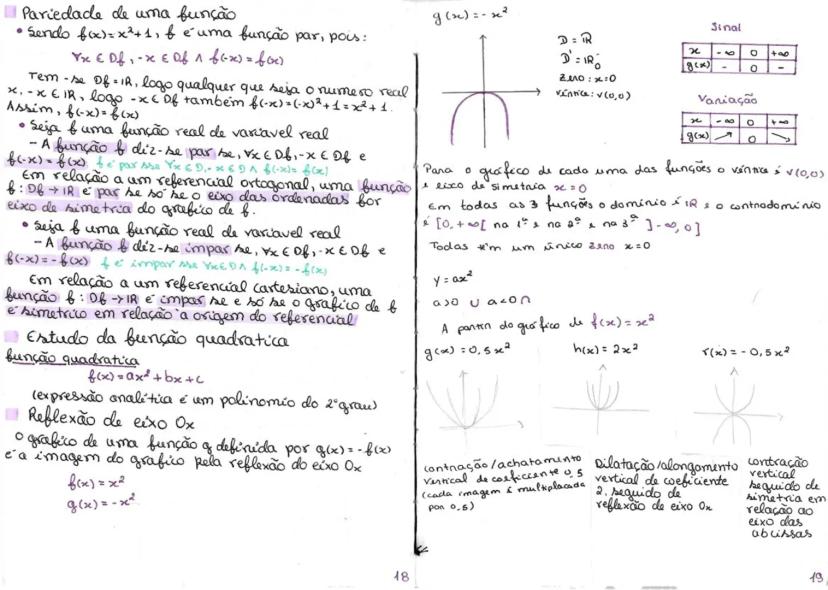 Pariedade de uma função
• Sendo f(x)=x²+1, f é uma função par, pois:
∀x ∈ Df, -x ∈ Df ∧ f(-x)=f(x)
Tem-se Df=IR, logo qualquer que seja o numero real
x, -x ∈ IR, logo -x ∈ Df também f(-x)=(-x)²+1=x²+1.
Assim, f(-x)=f(x)
• Seja f uma função real de variavel real
– A função f diz-se par se, ∀x ∈ Df, -x ∈ Df e
f(-x)=f(x) f é par sse ∀x ∈ D, -x ∈ D ∧ f(-x)=f(x)
Em relação a um referencial ortogonal, uma função
f: Df → IR é par se só se o eixo das ordenadas for
eixo de simetria do grafico de f.
• Seja f uma função real de variavel real
– A função f diz-se impar se, ∀x ∈ Df, -x ∈ Df e
f(-x)=-f(x) f é impar sse ∀x∈D ∧ f(-x)=-f(x)
Em relação a um referencial cartesiano, uma
função f: Df → IR é impar se e só se o grafico de f
é simetrico em relação à origem do referencial
Estudo da função quadratica
função quadratica
f(x)=ax²+bx+c
(expressão analitica é um polinomio do 2º grau)
Reflexão de eixo Ox
O grafico de uma função g definida por g(x)=-f(x)
é a imagem do grafico pela reflexão do eixo Ox
f(x)=x²
g(x)=-x²
18
g(x)=-x²
D = IR
D' = IR₀⁻
zero: x=0
vértice: V(0,0)
Sinal
x -∞ 0 +∞
g(x) - 0 -
Variação
x -∞ 0 +∞
g(x) ↗ 0 ↘
Para o gráfico de cada uma das funções o vértice é V(0,0)
e eixo de simetria x=0
Em todas as 3 funções o dominio é IR e o contradominio
é [0,+∞[ na 1ª e na 2ª e na 3ª ]-∞,0]
Todas têm um único zero x=0
y=ax²
a>0 ∪ a<0 ∩
A partir do gráfico de f(x)=x²
g(x)=0,5x² h(x)=2x² r(x)=-0,5x²
contração/achatamento
vertical de coeficiente 0,5
(cada imagem é multiplacada
por 0,5)
Dilatação/alongamento
vertical de coeficiente
2. seguido de
reflexão de eixo Ox
contração
vertical
seguido de
simetria em
relação ao
eixo das
abcissas
19